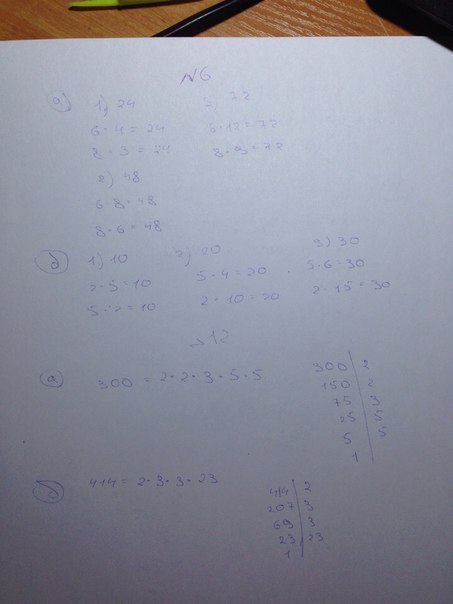 №6
а) 1) 24 3) 72
6·4=24 6·12=72
8·3=24 8·9=72
2) 48
6·8=48
8·6=48
б) 1) 10 2) 20 3) 30
2·5=10 5·4=20 5·6=30
5·2=10 2·10=20 2·15=30
12
а) 300 = 2·2·3·5·5
300 | 2
150 | 2
75 | 3
25 | 5
5 | 5
1
б) 414 = 2·3·3·23
414 | 2
207 | 3
69 | 3
23 | 23
1